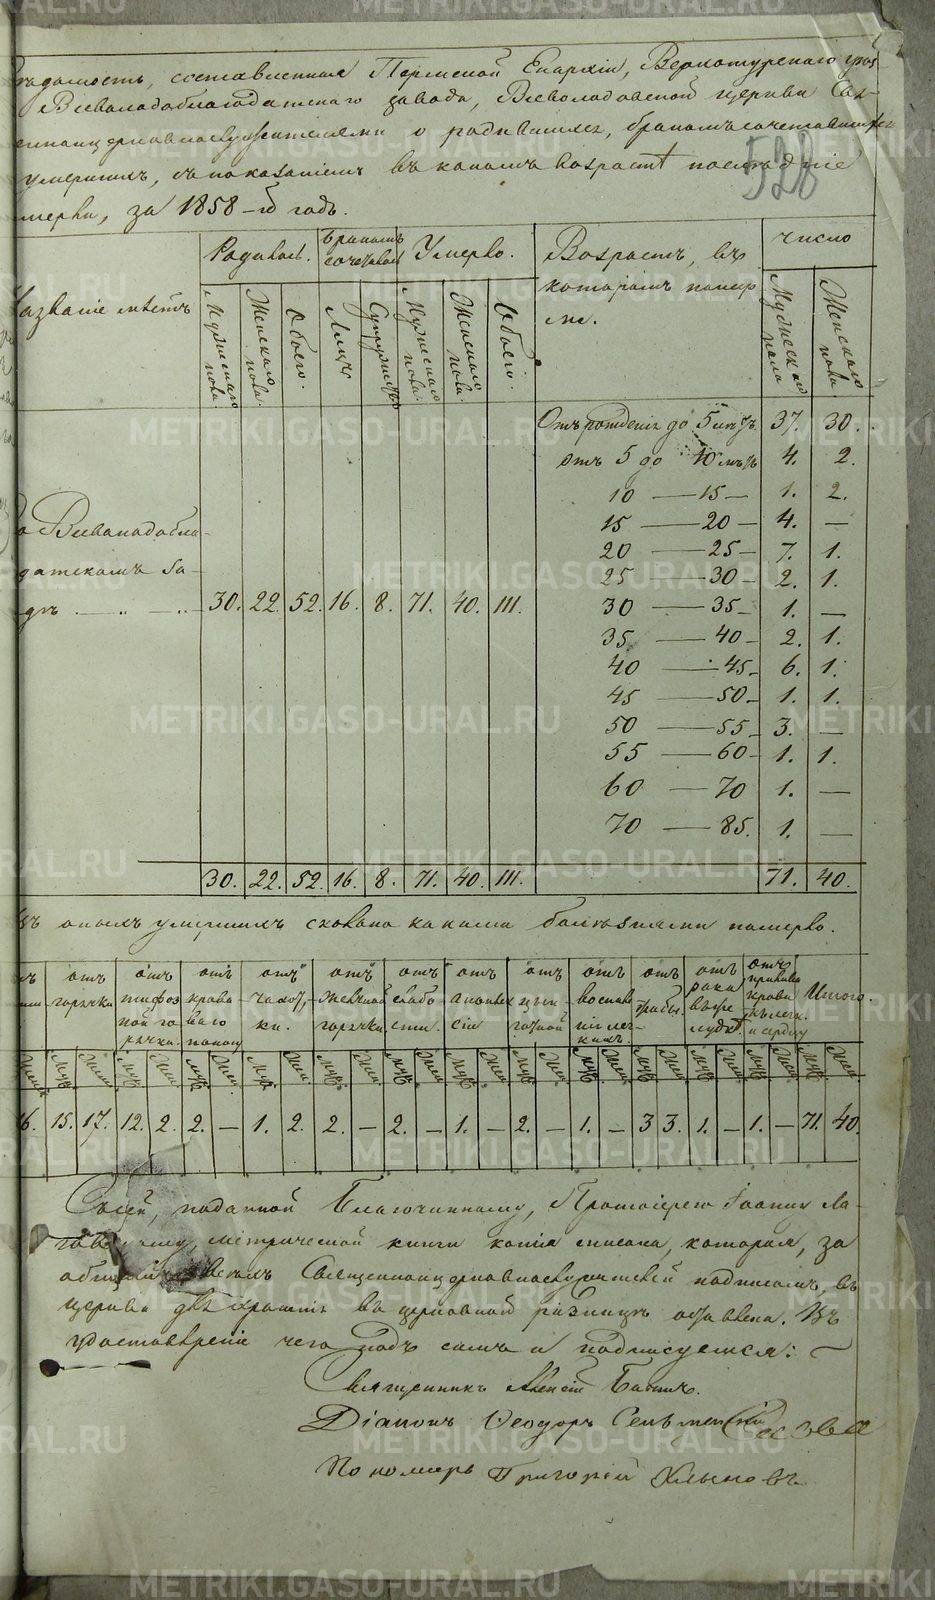 Ведомость, составленная Пермской Епархіи, Верхотурскаго уѣз-
Всеволодоблагодатскаго завода, Всеволодовской церкви Свя-
щенноцерковнослужителями о родившихся, бракомъ сочетавшихся
умершихъ, съ показаніемъ въ какомъ возрастѣ послѣдніе
мерли, за 1858-й годъ.
528
Названіе мѣстъ
Родилось.
Бракомъ сочетавш.
Умерло.
Возрастъ, въ
которомъ помер
ли.
Число
Мужескаго пола.
Женскаго пола.
Обоего.
Лицъ
Супружествъ
Мужескаго пола.
Женскаго пола.
Обоего.
Мужескаго пола
Женскаго пола.
Отъ рожденія до 5 лѣтъ. 37. 30.
отъ 5 до 10 лѣтъ 4. 2.
10 — 15 — 1. 2.
15 — 20 — 4. —
20 — 25 — 7. 1.
25 — 30 — 2. 1.
30 — 35 — 1. —
35 — 40 — 2. 1.
40 — 45 — 6. 1.
45 — 50 — 1. 1.
50 — 55 — 3. —
55 — 60 — 1. 1.
60 — 70 1. —
70 — 85. 1. —
Во Всеволодобла-
датскомъ за-
дѣ — 30. 22. 52. 16. 8. 71. 40. 111.
30. 22. 52. 16. 8. 71. 40. 111. 71. 40.
Изъ оныхъ умершихъ сколько какими болѣзнями померло.
отъ горячки
отъ тифозной горячки.
отъ кроваваго поносу
отъ чахотки.
отъ желчной горячки
отъ слабости.
отъ апоплексіи
отъ цынготной
отъ воспаленія легкихъ.
отъ
отъ рака въ желудкѣ.
отъ прилива крови къ легк. и сердцу
Итого.
Жен. Муж. Жен. Муж. Жен. Муж. Жен. Муж. Жен. Муж. Жен. Муж. Жен. Муж. Жен. Муж. Жен. Муж. Жен. Муж. Жен. Муж. Жен. Муж. Жен. Муж. Жен.
6. 15. 17. 12. 2. 2. — 1. 2. 2. — 2. — 1. — 2. — 1. — 3 3. 1. — 1. — 71. 40.
Съ сей, поданной Благочинному, Протоіерею Іоанну
метрической книги копія списана, которая, за
общимъ всѣхъ Священноцерковнослужителей подписомъ, въ
церкви для храненія въ церковной ризницѣ оставлена. Въ
удостовѣреніе чего подъ симъ и подписуемся:
Священникъ Алексій
Діаконъ Ѳеодоръ
Пономарь Григорій Хлыновъ
METRIKI.GASO-URAL.RU